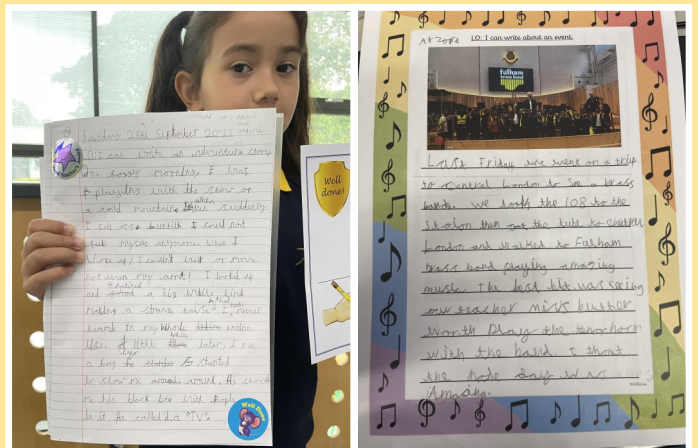 Tuesday 28th September 2021
LO: I can write an adventure story
One morning, I was
playing with the snow on
a cold mountain. when Suddenly
I fell until I could not
feel myself anymore. When I
woke up I couldn't or move.
not even my arms! I looked up
and a big kind
making a strange noise I never
heard in my whole entire
life. A little while later, I met
a boy he started
to show me around. He showed
me his black box with people
in it he called it a "TV".
Well Done
Well
done!
LO: I can write about an event.
fulham
brass band
Last Friday we went on a trip
to Central London to see a brass
band. we took the 108 to the
Staion then got the tube to central
London and walked to Fulham
brass band playing amazing
music. The best bit was seing
our teacher miss butter
worth Play the
with the band. I thort
the hole day was
Amazing.